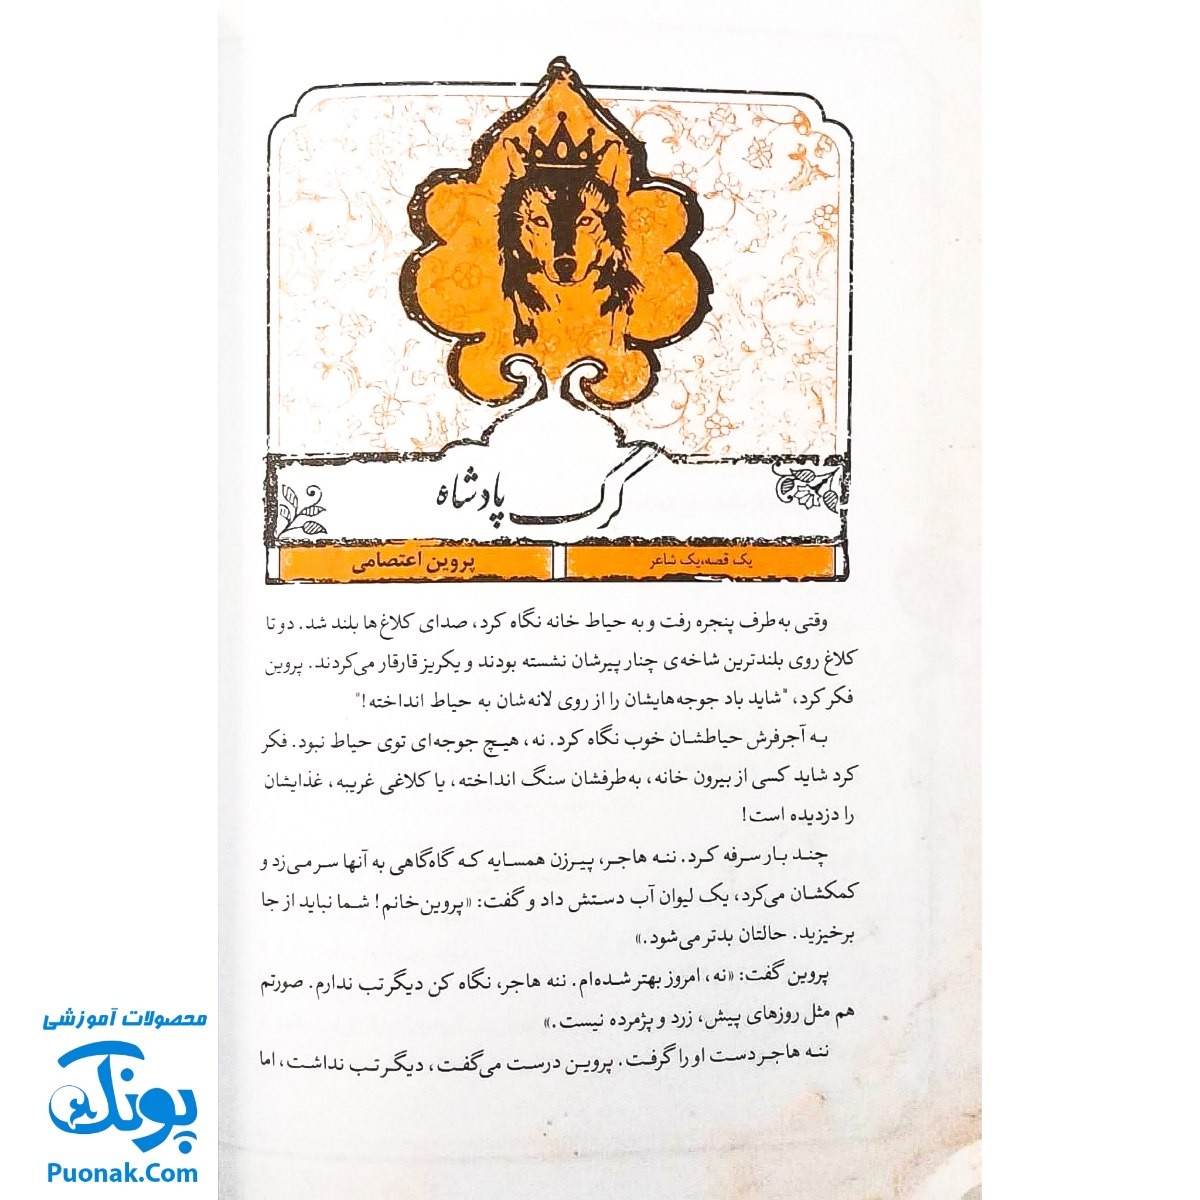 گرگ پادشاه
یک قصه،یک شاعر
پروین اعتصامی
وقتی به‌طرف پنجره رفت و به حیاط خانه نگاه کرد، صدای کلاغ‌ها بلند شد. دو تا
کلاغ روی بلندترین شاخه‌ی چنار پیرشان نشسته بودند و یکریز قارقار می‌کردند. پروین
فکر کرد، "شاید باد جوجه‌هایشان را از روی لانه‌شان به حیاط انداخته!"
به آجرفرش حیاطشان خوب نگاه کرد. نه، هیچ جوجه‌ای توی حیاط نبود. فکر
کرد شاید کسی از بیرون خانه، به‌طرفشان سنگ انداخته، یا کلاغی غریبه، غذایشان
را دزدیده است!
چند بار سرفه کرد. ننه هاجر، پیرزن همسایه که گاه‌گاهی به آنها سر می‌زد و
کمکشان می‌کرد، یک لیوان آب دستش داد و گفت: «پروین‌خانم! شما نباید از جا
برخیزید. حالتان بدتر می‌شود.»
پروین گفت: «نه، امروز بهتر شده‌ام. ننه هاجر، نگاه کن دیگر تب ندارم. صورتم
هم مثل روزهای پیش، زرد و پژمرده نیست.»
ننه هاجر دست او را گرفت. پروین درست می‌گفت، دیگر تب نداشت، اما
محصولات آموزشی
پونک
Puonak.Com